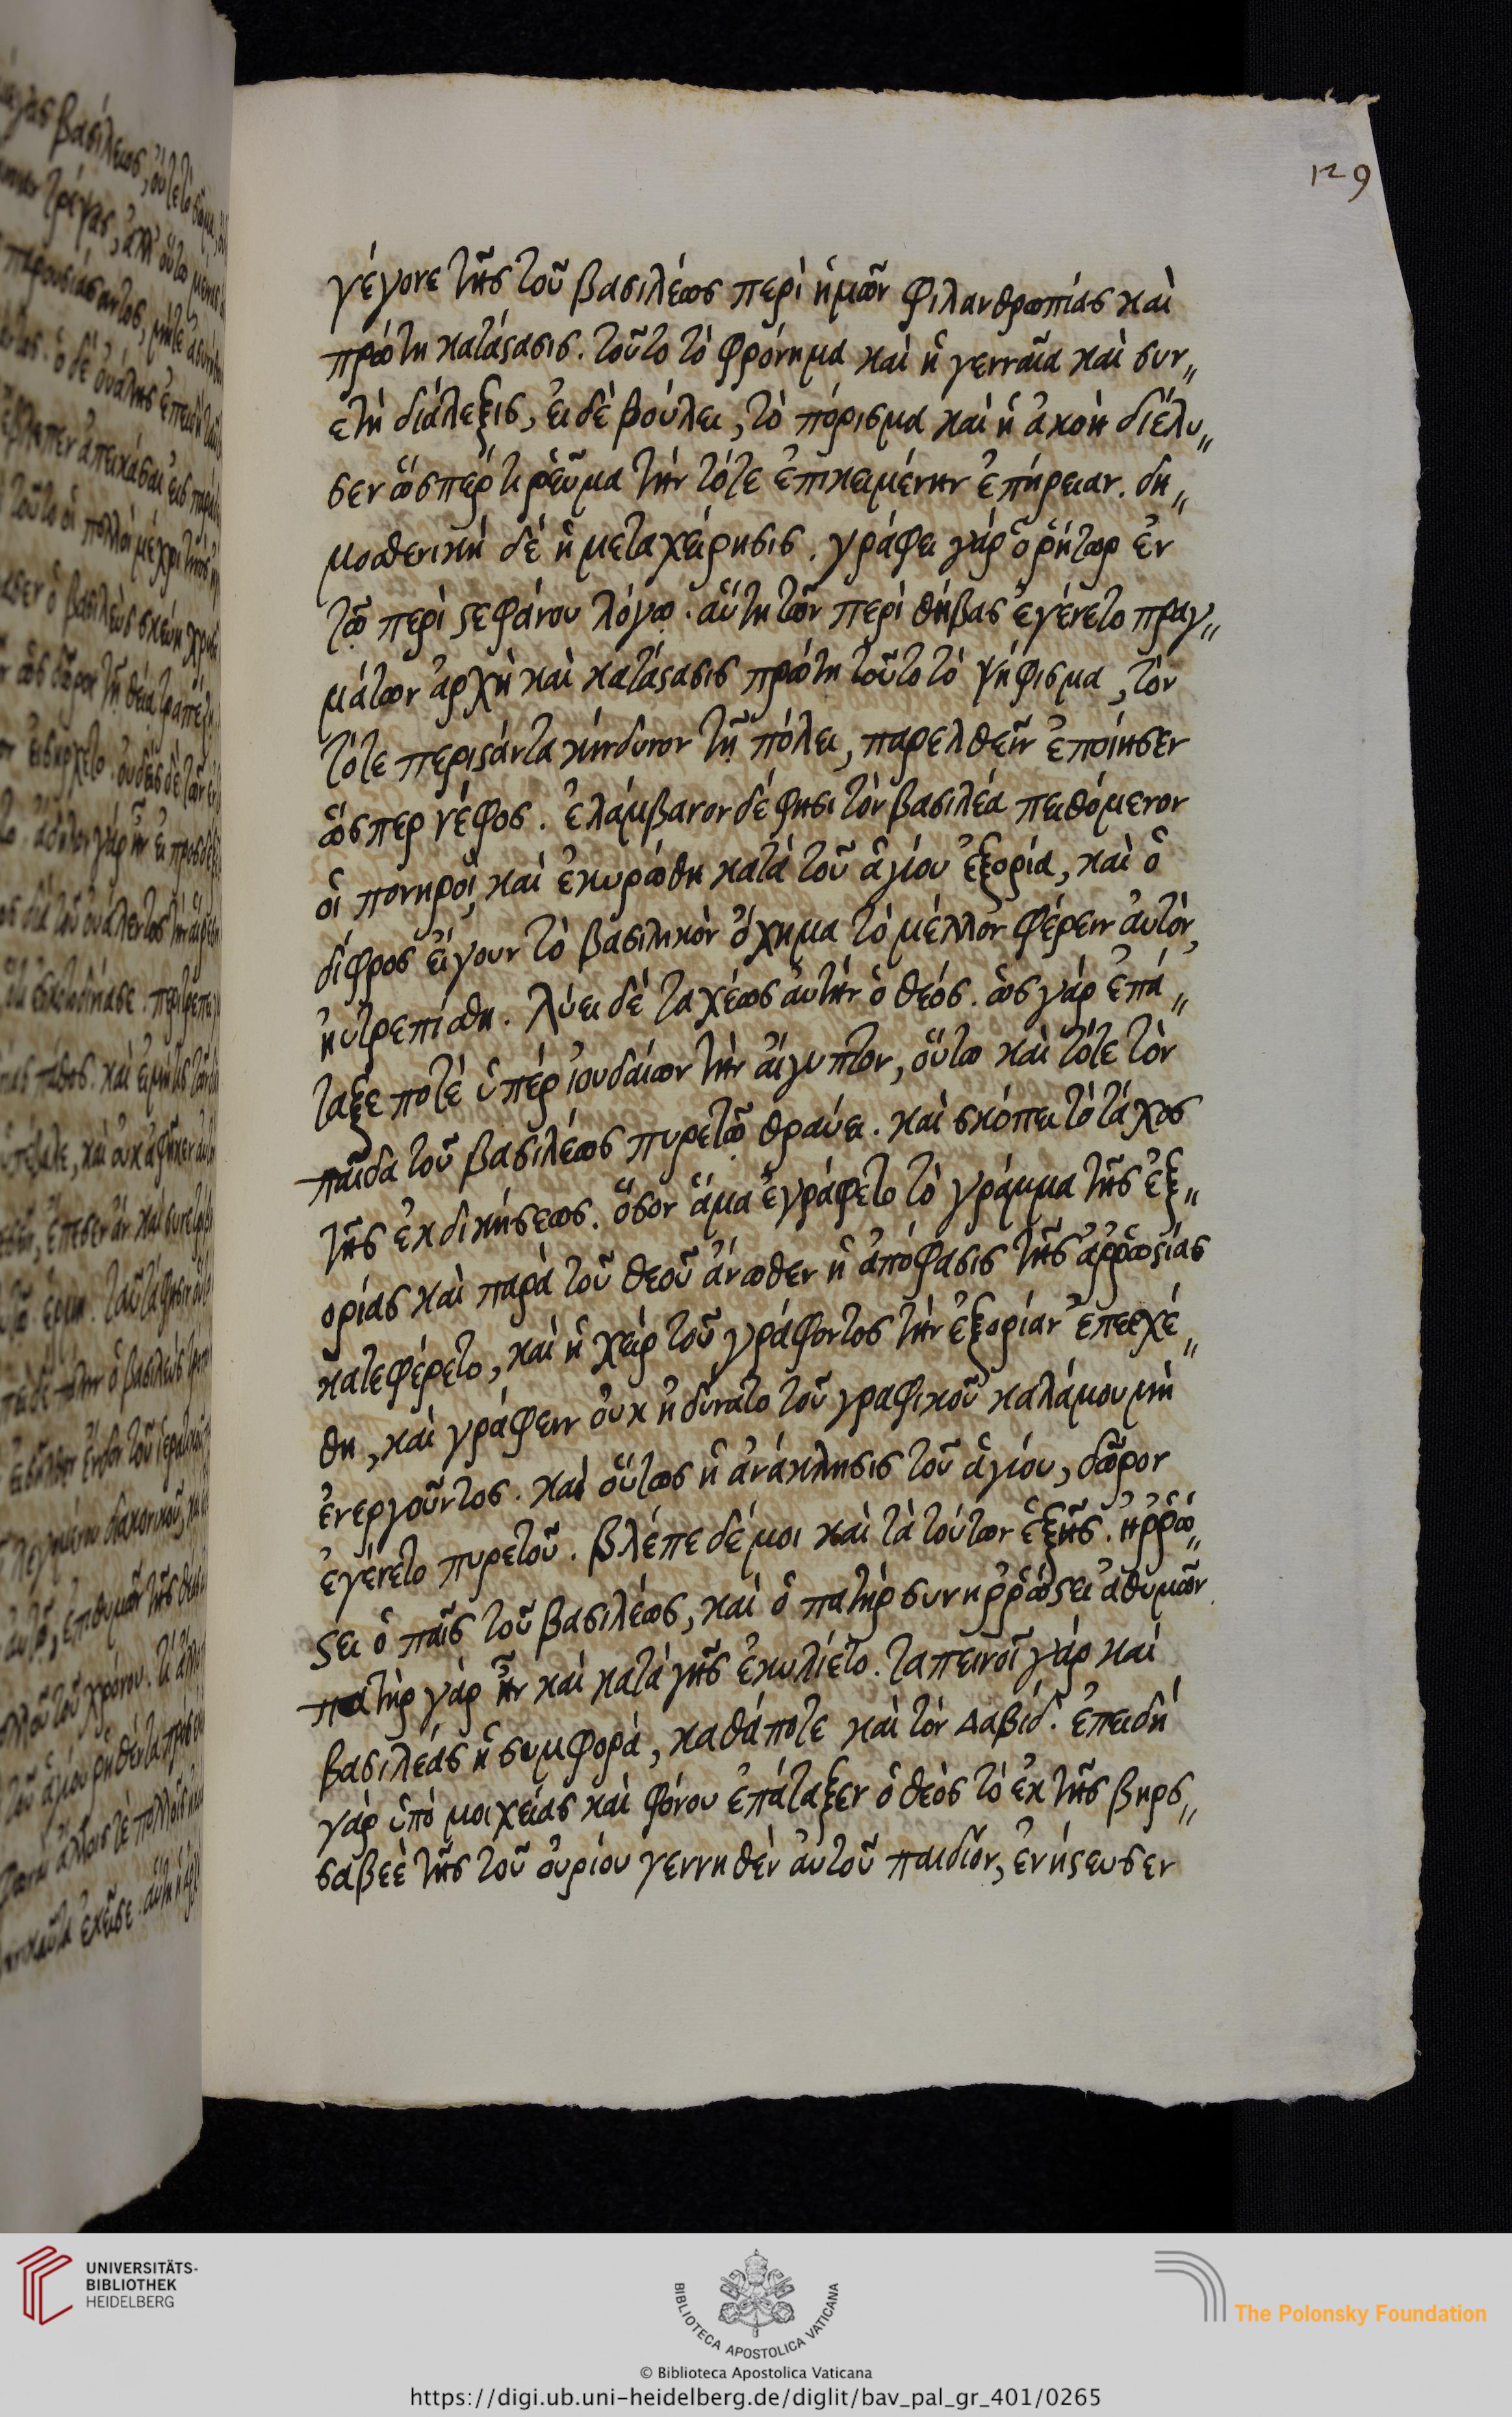 129
γέγονε τῆς τοῦ βασιλέως περὶ ἡμῶν φιλανθρωπίας καὶ
πρώτη κατάςασις. τοῦτο τὸ φρόνημα καὶ ἡ γενναῖα καὶ συν„
ετὴ διάλεξις, εἰ δὲ βούλει, τὸ πόρισμα καὶ ἡ ἀκοὴ διέλυ„
σεν ὥσπέρ τι ῥεῦμα τὴν τότε ἐπικειμένην ἐπήρειαν. δη„
μοσθενικὴ δὲ ἡ μεταχείρησις. γράφει γὰρ ὁ ῥήτωρ ἐν
τῷ περὶ ςεφάνου λόγῳ. αὕτη τῶν περὶ θήβας ἐγένετο πραγ„
μάτων ἀρχὴ καὶ κατάςασις πρώτη τοῦτο τὸ ψήφισμα, τὸν
τότε περιςάντα κίνδυνον τῇ πόλει, παρελθεῖν ἐποίησεν
ὥσπερ νέφος. ἐλάμβανον δέ φησι τὸν βασιλέα πειθόμενον
οἱ πονηροί, καὶ ἐκυρώθη κατὰ τοῦ ἁγίου ἐξορία, καὶ ὁ
δίφρος εἴγουν τὸ βασιλικὸν ὄχημα τὸ μέλλον φέρειν αὐτὸν,
ηὐτρεπίσθη. λύει δὲ ταχέως αὐτὴν ὁ θεός. ὡς γὰρ ἐπά„
ταξέ ποτε ὑπὲρ ἰουδαίων τὴν αἴγυπτον, οὕτω καὶ τότε τὸν
παῖδα τοῦ βασιλέως πυρετῷ θραύει. καὶ σκόπει τὸ τάχος
τῆς ἐκδικήσεως. ὅσον ἅμα ἐγράφετο τὸ γράμμα τῆς ἐξ„
ορίας καὶ παρὰ τοῦ θεοῦ ἄνωθεν ἡ ἀπόφασις τῆς ἀῤῥωςίας
κατεφέρετο, καὶ ἡ χεὶρ τοῦ γράφοντος τὴν ἐξορίαν ἐπεσχέ„
θη, καὶ γράφειν οὐκ ἠδύνατο τοῦ γραφικοῦ καλάμου μὴ
ἐνεργοῦντος. καὶ οὕτως ἡ ἀνάκλησις τοῦ ἁγίου, δῶρον
ἐγένετο πυρετοῦ. βλέπε δέ μοι καὶ τὰ τούτων ἑξῆς. ἠῤῥώ„
ςει ὁ παῖς τοῦ βασιλέως, καὶ ὁ πατὴρ συνηῤῥώςει ἀθυμῶν.
πατὴρ γὰρ ἦν καὶ κατὰ γῆς ἐκυλίετο. ταπεινοῖ γὰρ καὶ
βασιλέας ἡ συμφορὰ, καθάποτε καὶ τὸν Δαβίδ. ἐπειδὴ
γὰρ ὑπὸ μοιχείας καὶ φόνου ἐπάταξεν ὁ θεὸς τὸ ἐκ τῆς βηρς„
σαβεὲ τῆς τοῦ οὐρίου γεννηθὲν αὐτοῦ παιδίον, ἐνήςευσεν
UNIVERSITÄTS-
BIBLIOTHEK
HEIDELBERG
BIBLIOTECA APOSTOLICA VATICANA
The Polonsky Foundation
© Biblioteca Apostolica Vaticana
https://digi.ub.uni-heidelberg.de/diglit/bav_pal_gr_401/0265